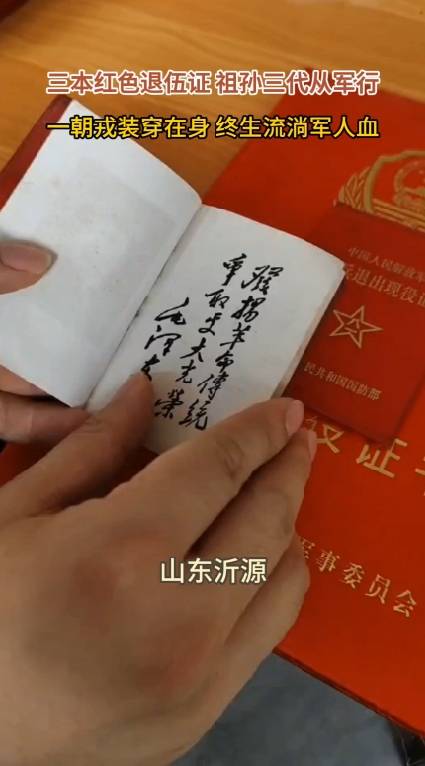 三本红色退伍证 祖孙三代从军行
一朝戎装穿在身 终生流淌军人血
發揚革命傳統
爭取更大光榮
毛泽东
中国人民解放军
兵退出现役证
民共和国国防部
役证
军事委员会
山东沂源